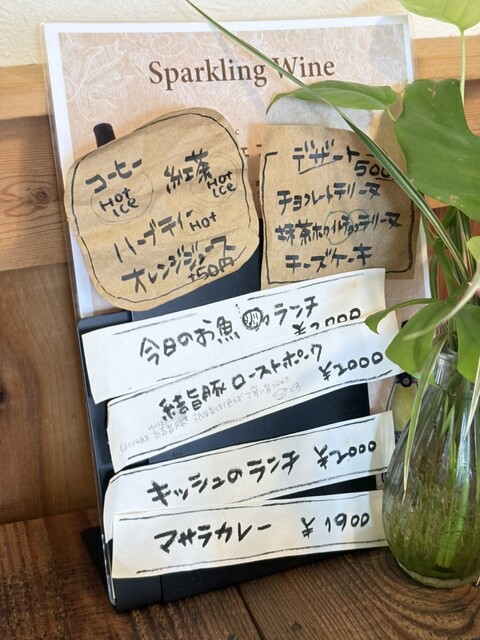 Sparkling Wine
コーヒー
HOT
ICE
紅茶
HOT
ICE
ハーブティー HOT
オレンジジュース
+50円
デザート
500
チョコレートテリーヌ
抹茶ホワイトチョコテリーヌ
チーズケーキ
今日のお魚 ランチ
¥2000
ローストポーク
¥2000
キッシュのランチ ¥2000
マサラカレー ¥1900